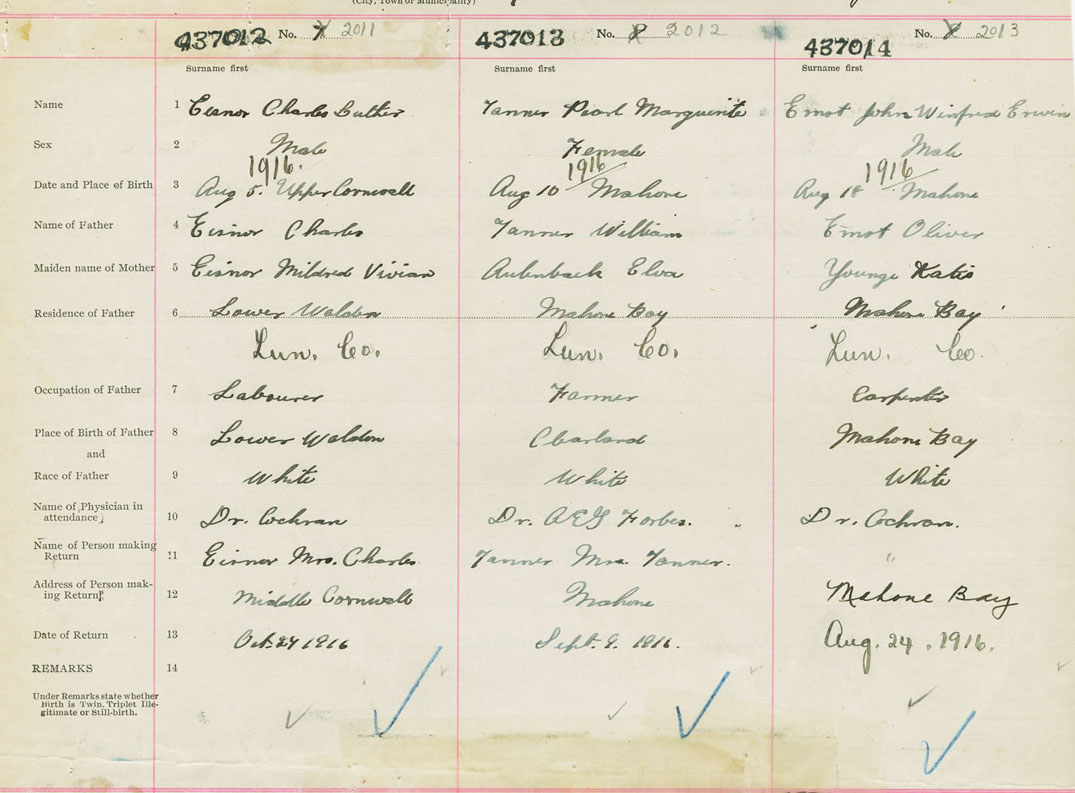 (City, Town or Municipality)
437012 No. 7 2011 437013 No. 8 2012 437014 No. 2013
Surname first Surname first Surname first
Name 1 Eisnor Charles Luther Tanner Pearl Marguerite Ernst John Winfred Erwin
Sex 2 Male Female Male
1916. 1916 1916
Date and Place of Birth 3 Aug 5. Upper Cornwall Aug 10 Mahone Aug 18 Mahone
Name of Father 4 Eisnor Charles Tanner William Ernst Oliver
Maiden name of Mother 5 Eisnor Mildred Vivian Aulenback Elva Younge Katie
Residence of Father 6 Lower Walden Mahone Bay Mahone Bay
Lun. Co. Lun. Co. Lun. Co.
Occupation of Father 7 Labourer Farmer Carpenter
Place of Birth of Father 8 Lower Walden Clearland Mahone Bay
and
Race of Father 9 White White White
Name of Physician in
attendance 10 Dr. Cochran Dr. A E G Forbes. " Dr. Cochran.
Name of Person making
Return 11 Eisnor Mrs. Charles. Tanner Mrs. Tanner. "
Address of Person mak-
ing Return 12 Middle Cornwall Mahone Mahone Bay
Date of Return 13 Oct. 24 1916 Sept. 9. 1916. Aug. 24, 1916.
REMARKS 14
Under Remarks state whether
Birth is Twin, Triplet Ille-
gitimate or Still-birth.